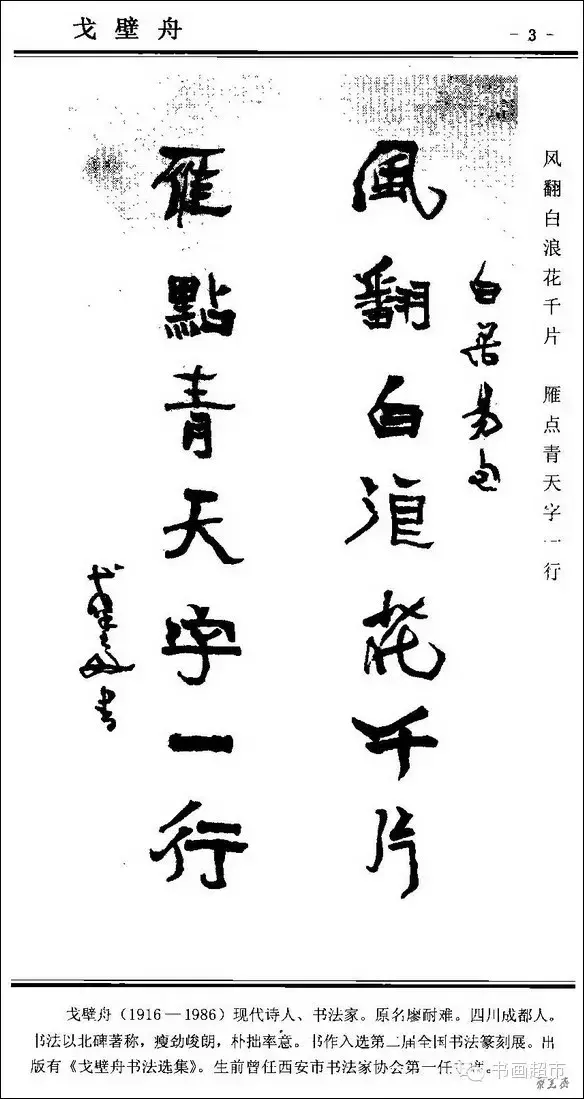 戈壁舟
- 3 -
风翻白浪花千片 雁点青天字一行
白居易句
風翻白浪花千片
雁點青天字一行
戈壁舟书
戈壁舟（1916—1986）现代诗人、书法家。原名廖耐难。四川成都人。
书法以北碑著称，瘦劲峻朗，朴拙率意。书作入选第二届全国书法篆刻展。出
版有《戈壁舟书法选集》。生前曾任西安市书法家协会第一任 席。
书画超市